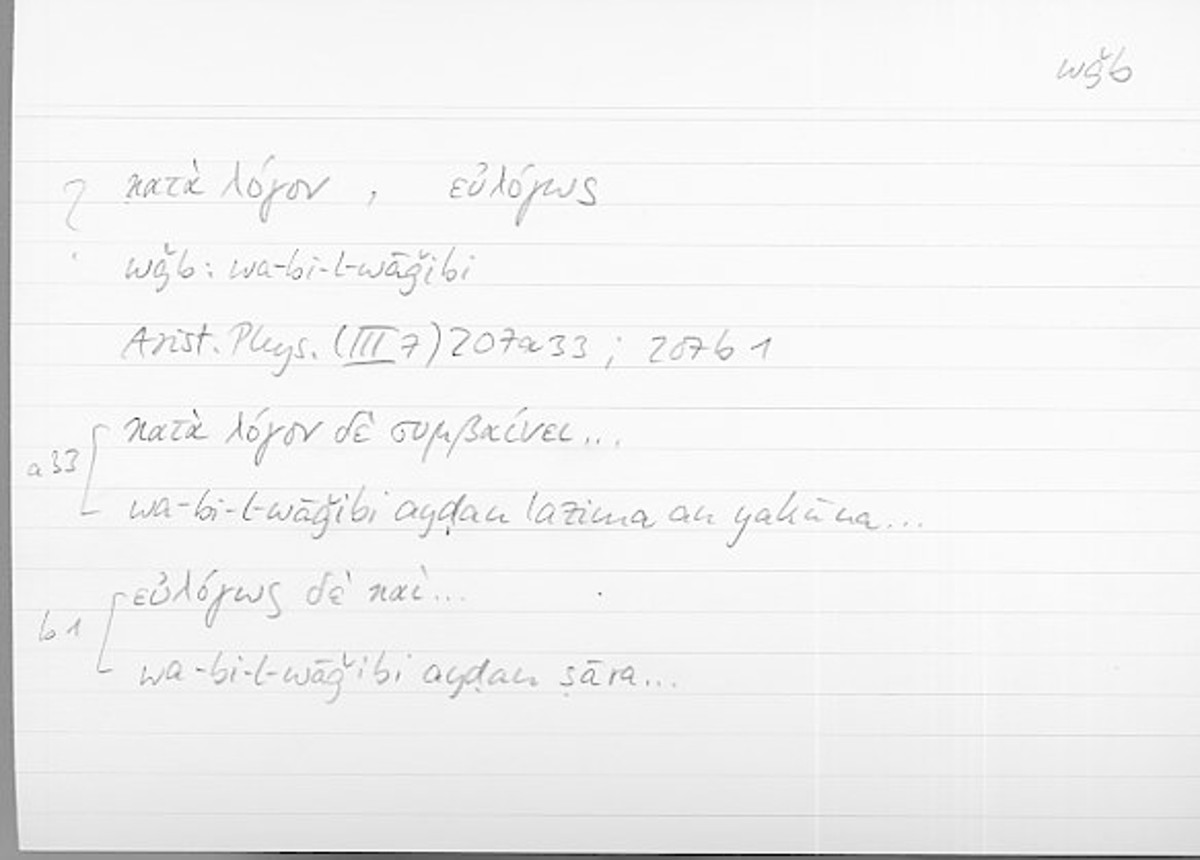 wǧb
? κατὰ λόγον , εὐλόγως
wǧb: wa-bi-l-wāǧibi
Arist. Phys. (III 7) 207a33 ; 207b1
κατὰ λόγον δὲ συμβαίνει...
a33
wa-bi-l-wāǧibi ayḍan lazima an yakūna...
εὐλόγως δὲ καὶ...
b1
wa-bi-l-wāǧibi ayḍan ṣāra...